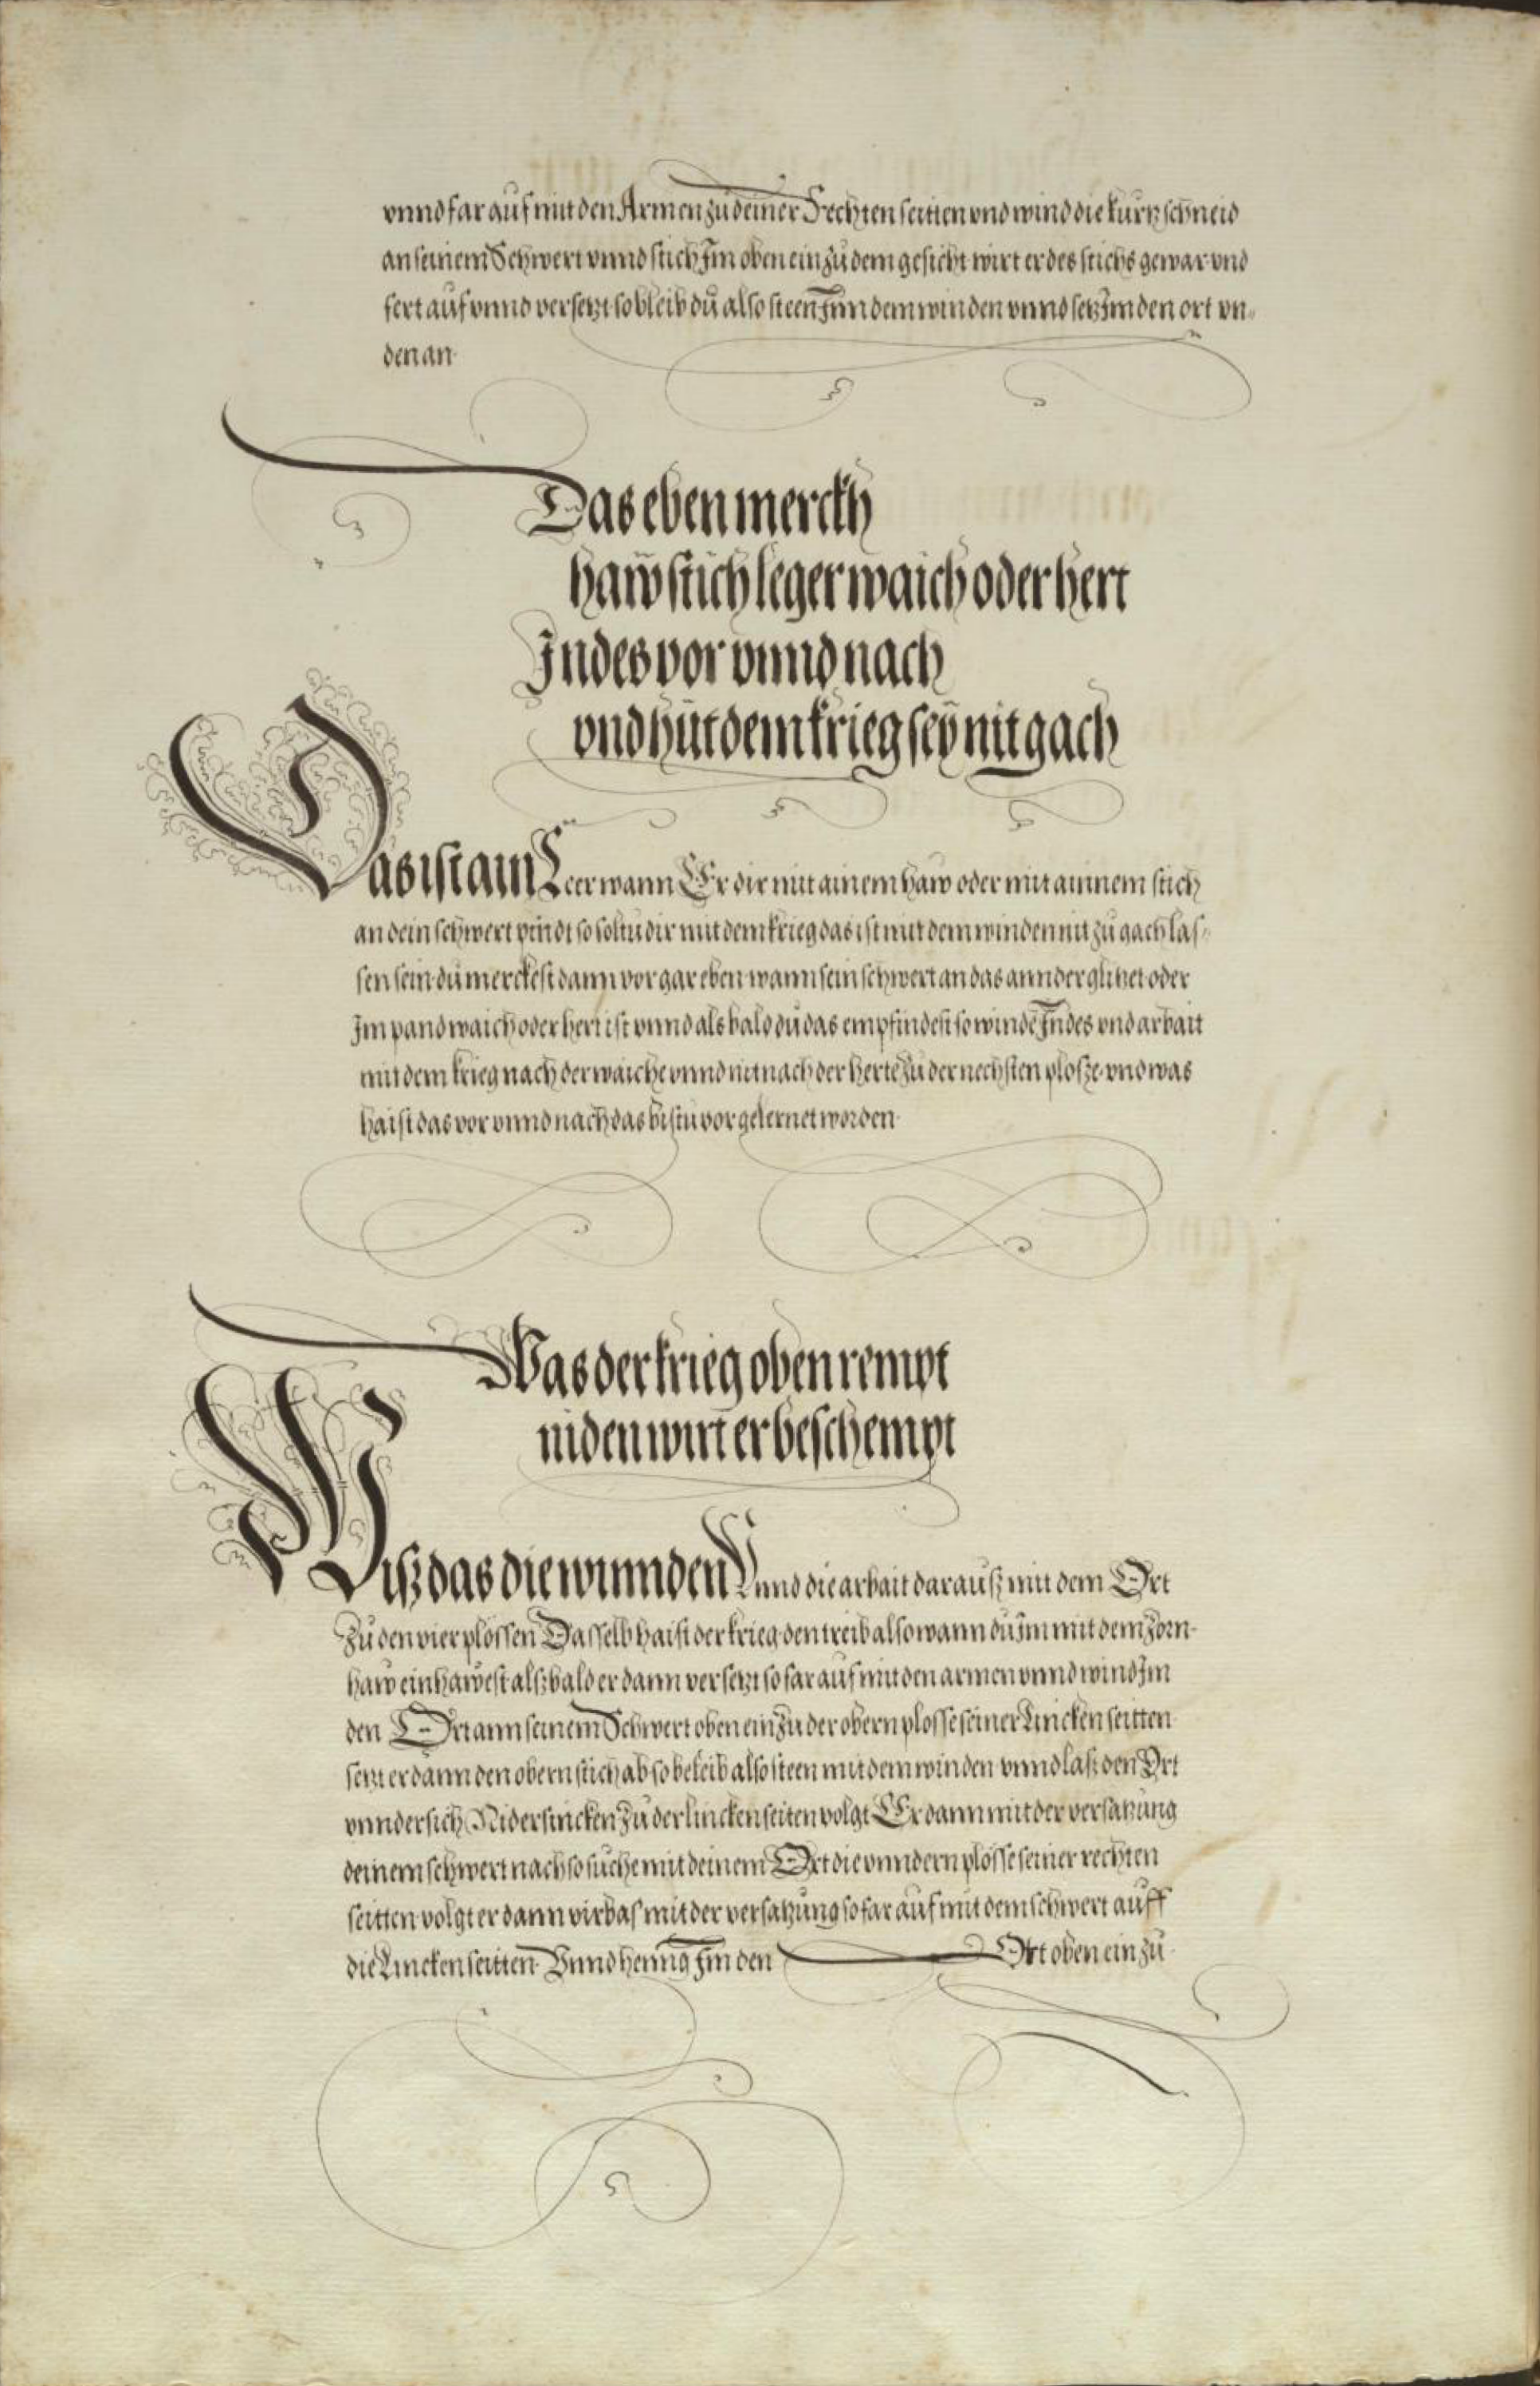 vnnd far auf mit den Armen zu deiner Rechten seitten vnd wind die kurtz schneid
an seinem Schwert vnnd stich Im oben ein zu dem gesicht wirt er des stichs gewar vnd
fert auf vnnd versetzt so bleib du also steen Inn dem winden vnnd setz Im den ort vn-
den an
Das eben merckh
haw stich leger waich oder hert
Indes vor vnnd nach
vnd hüt dem krieg sey nit gach
Das ist ain Leer wann Er dir mit ainem haw oder mit ainnem stich
an dein schwert pindt so soltu dir mit dem krieg das ist mit dem winden nit zu gach las-
sen sein du merckest dann vor gar eben wann sein schwert an das annder glitzet oder
Im pand waich oder hert ist vnnd als bald du das empfindest so winde Indes vnd arbait
mit dem krieg nach der waiche vnnd nit nach der herte zu der nechsten plosze vnd was
haist das vor vnnd nach das bistu vor gelernet worden
Was der krieg oben rempt
niden wirt er beschempt
Wisz das die winnden Vnnd die arbait darausz mit dem Ort
Zu den vier plössen Dasselb haist der krieg den treib also wann du Im mit dem Zorn-
haw einhawest alszbald er dann versetzt so far auf mit den armen vnnd wind Im
den Ort ann seinem Schwert oben ein zu der obern plosse seiner Lincken seitten
setzt er dann den obern stich ab so beleib also steen mit dem winden vnnd lasz den Ort
vnndersich Nidersincken Zu der lincken seiten volgt Er dann mit der versatzung
deinem schwert nach so suche mit deinem Ort die vnndern plösse seiner rechten
seitten volgt er dann virbas mit der versatzung so far auf mit dem schwert auff
die Lincken seitten Vnnd henng Im den Ort oben ein zu